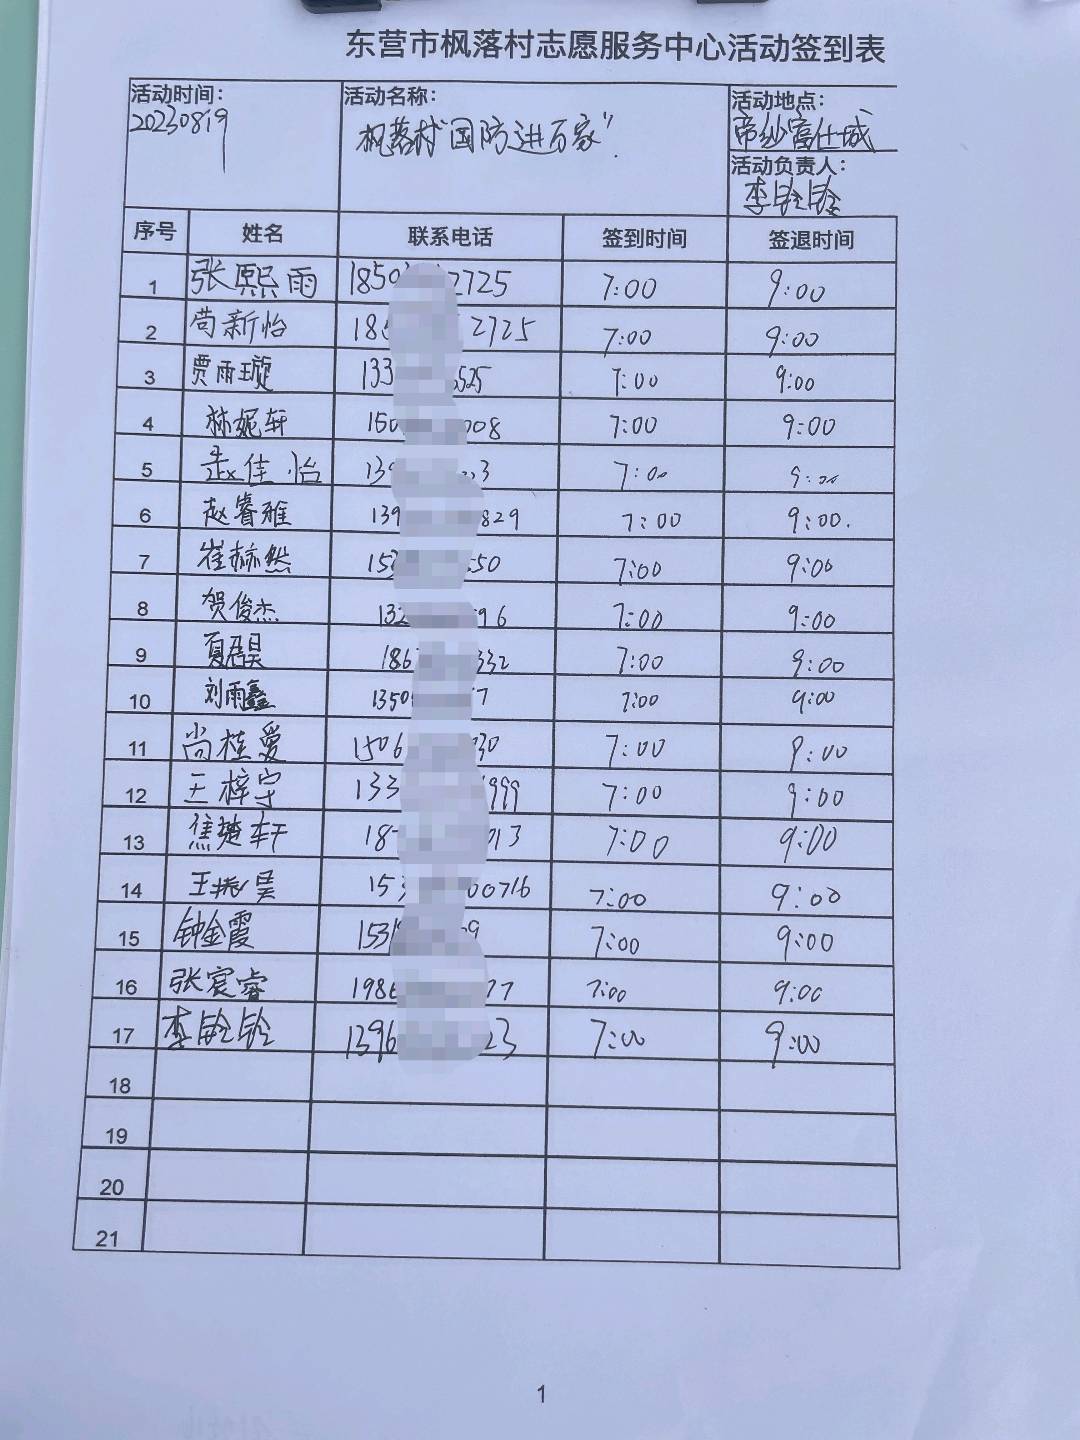 东营市枫落村志愿服务中心活动签到表
活动时间: 活动名称: 活动地点:
20230819 枫落村"国防进万家". 帝纱富仕城
活动负责人:
李铃铃
序号 姓名 联系电话 签到时间 签退时间
1 张熙雨 1850 2725 7:00 9:00
2 苟新怡 18 2725 7:00 9:00
3 贾雨璇 133 525 7:00 9:00
4 林妮轩 150 008 7:00 9:00
5 赵佳怡 139 3 7:00 9:00
6 赵睿雅 139 829 7:00 9:00.
7 崔赫然 15 50 7:00 9:00
8 贺俊杰 132 96 7:00 9:00
9 夏君昊 186 332 7:00 9:00
10 刘雨鑫 1350 7 7:00 9:00
11 尚桂爱 1506 30 7:00 9:00
12 王梓宇 133 999 7:00 9:00
13 焦楚轩 18 013 7:00 9:00
14 王振昊 153 00716 7:00 9:00
15 钟金霞 1531 9 7:00 9:00
16 张宸睿 1986 77 7:00 9:00
17 李铃铃 1396 23 7:00 9:00
18
19
20
21
1